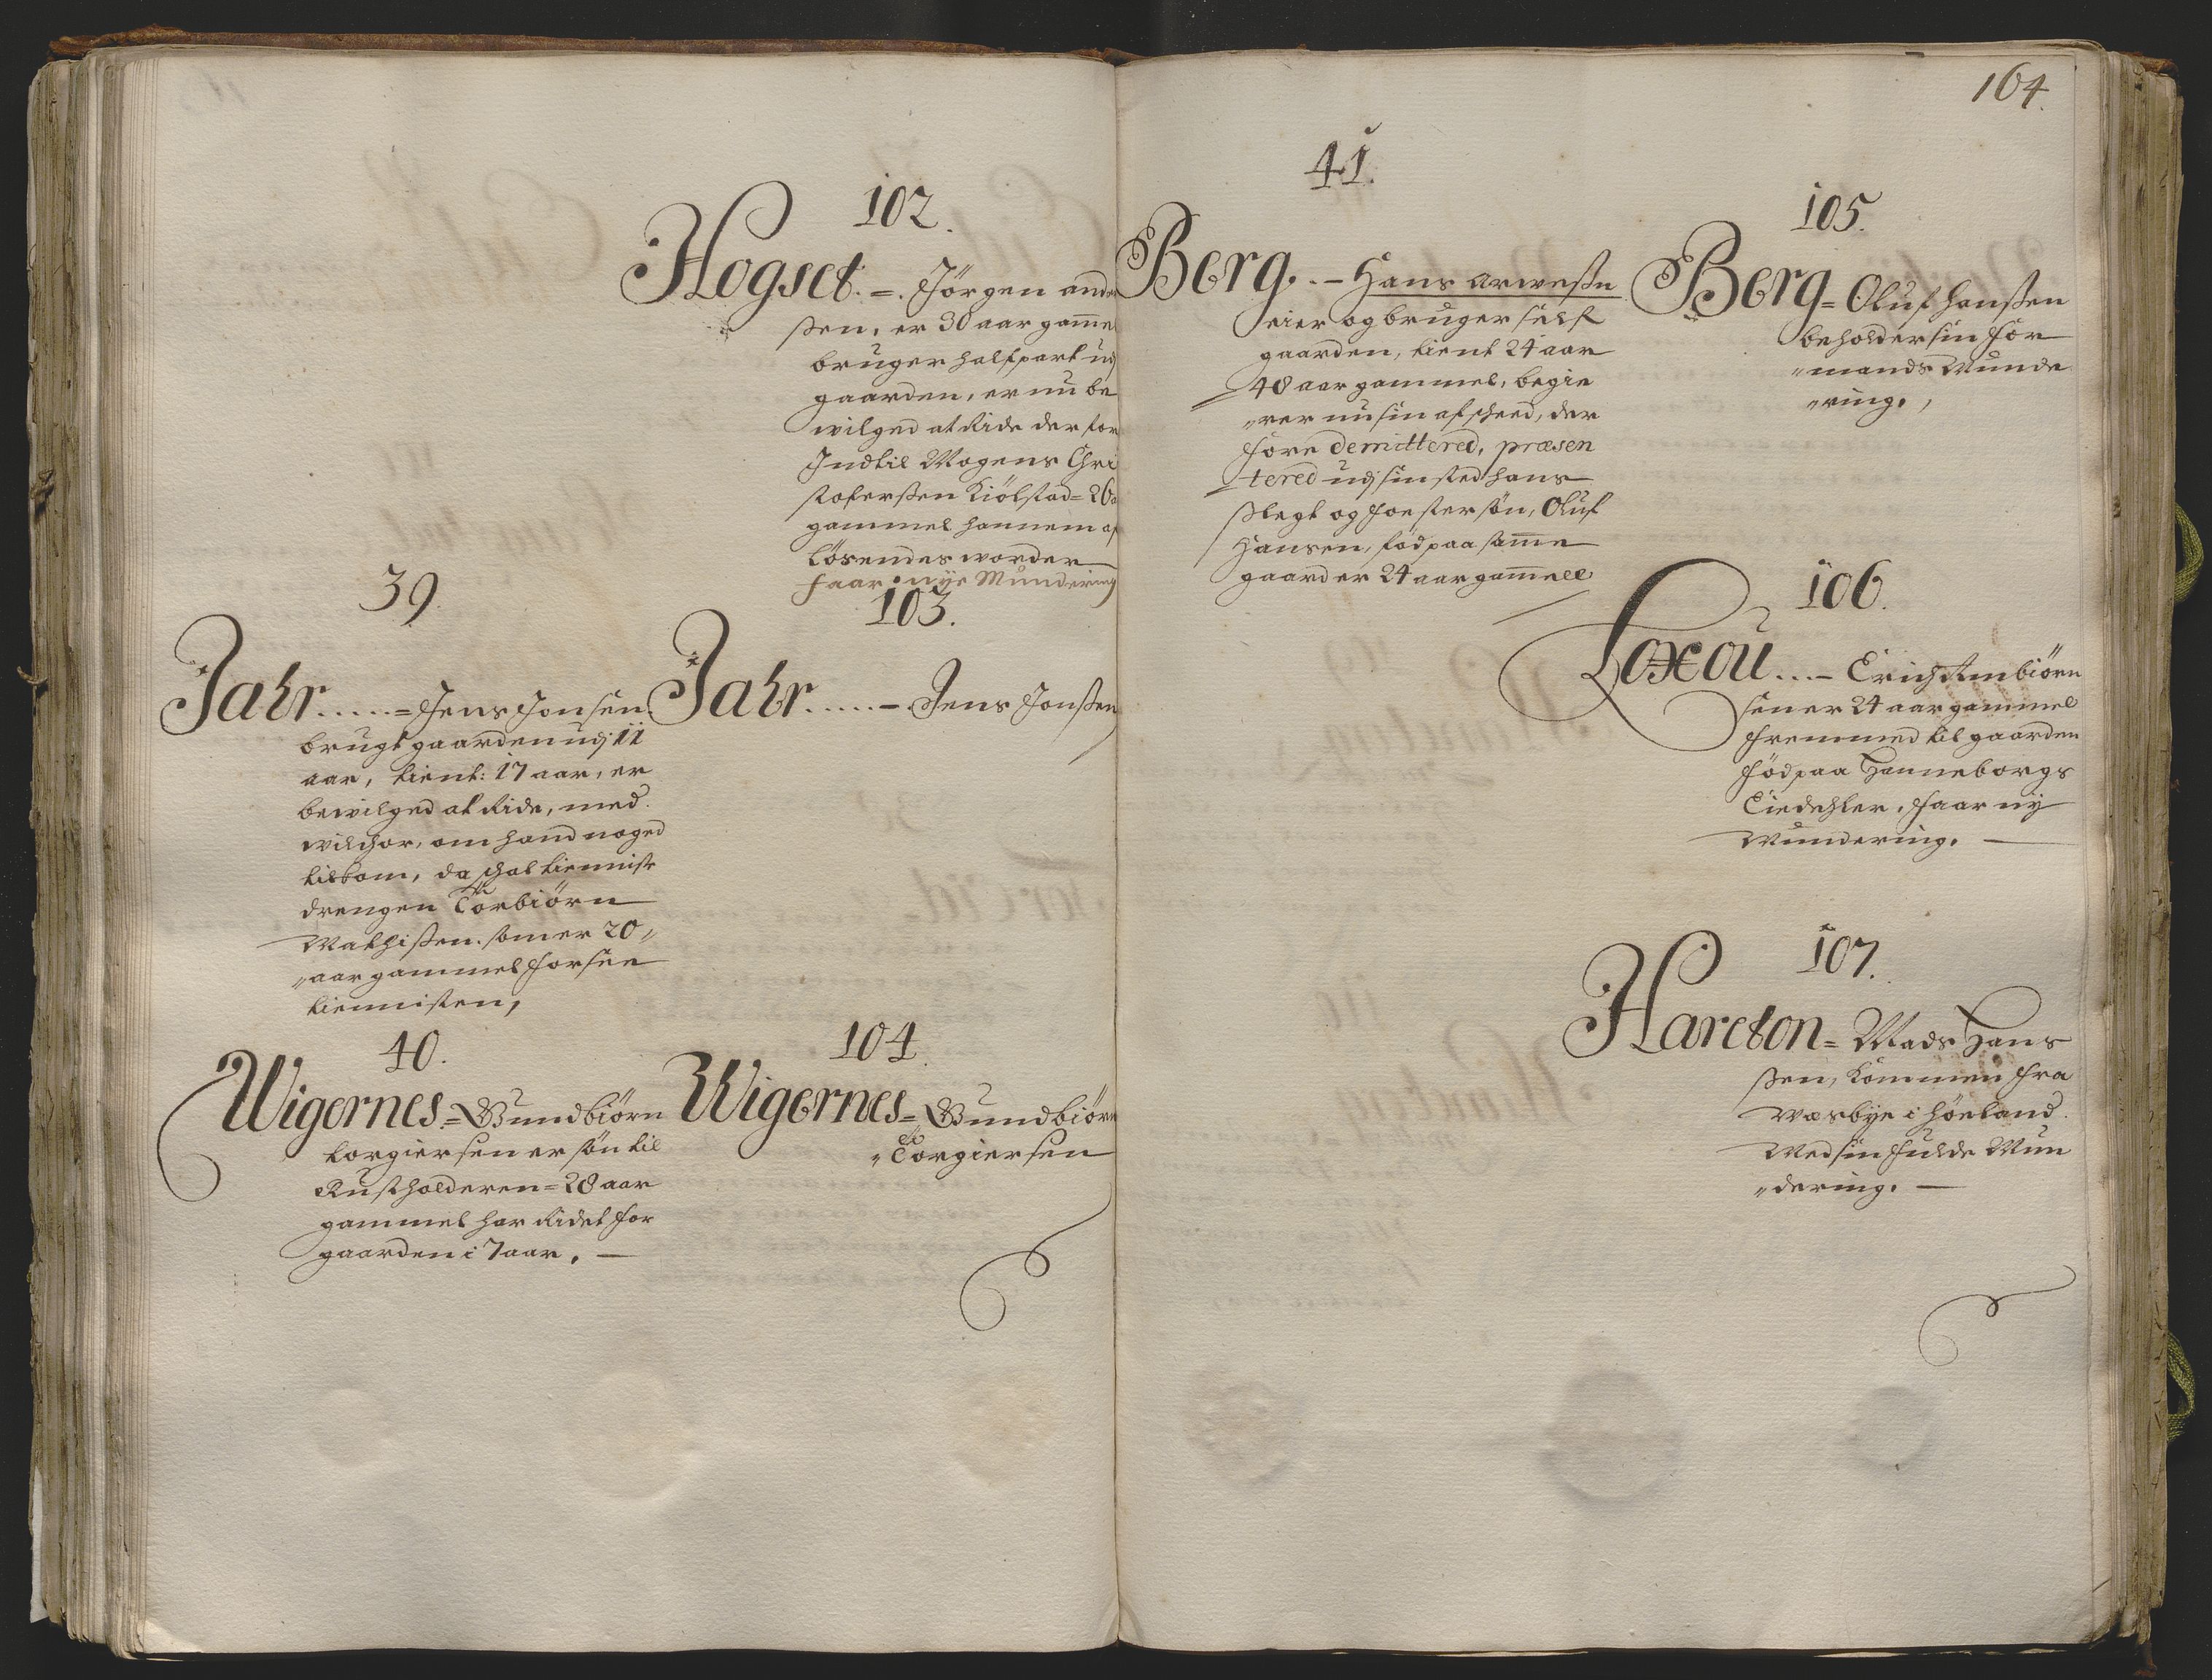 102.
Hogset. =. Jörgen and
ßen, er 30 aar gam̄el
bruger halfpart udj
gaarden, er nu be
wilged at Ride der for
Indtil Mogens Chri
stoferßen Kiölstad = 26 a
gammel hannem af
lösendes worder
faar nÿe Mundering
39.
Jahr.....= Jens Jonsen.
brugt gaarden udj 11
aar, tient: 17 aar, er
bewilged at Ride, med
wilchor, om hand noged
tilkom, da schal tienniste
drengen Törbiörn
Mathißen. som er 20„
„aar gammel forsee
tiennisten,
103.
Jahr.....- Jens Jonßen
40.
Wigernes. = Gundbiörn
torgiersen er sön til
Rustholderen = 28 aar
gammel har Ridet for
gaarden i 7 aar. —
104.
Wigernes = Gundbiörn
„Torgiersen
164.
41.
Berg. .- Hans arweßn
eier og bruger self
gaarden, tient 24 aar
48 aar gammel, begie
„rer nu sin afscheed, der
fore demittered, præsen
tered udj sin sted hans
Slegt og foster sön, Oluf
Hansen, föd paa sam̄e
gaard er 24 aar gam̄ell
105.
Berg = Oluf Hanßen
beholder sin for
„mands Munde
„ring.,
106.
Loxou...- Erich Ambiörn
sen er 24 aar gammel
fremmed til gaarden
föd paa Hanneborgs
Eiedehler, faar nÿ
Mundering. —
107.
Harcton = Mads Hans
ßen, kommen fra
Wasbÿe i Höeland.
Med sin fulde Mun
„dering. —